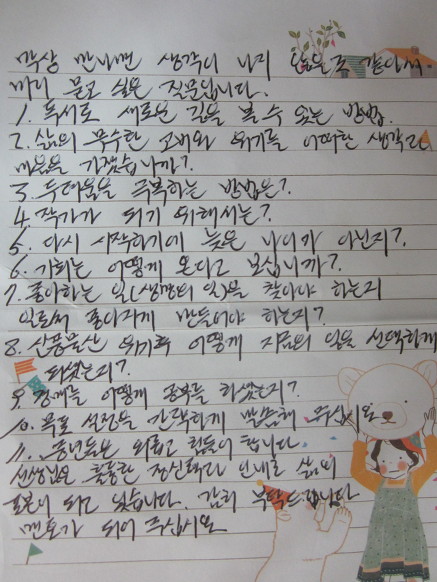 막상 만나면 생각이 나지 않을 것 같아서.
미리 묻고 싶은 질문입니다.
1. 독서로 새로운 길을 볼 수 있는 방법.
2. 삶의 무수한 고비와 위기를 어떠한 생각과
마음을 가졌습니까?
3. 두려움을 극복하는 방법은?
4. 작가가 되기 위해서는?
5. 다시 시작하기에 늦은 나이가 아닌지?
6. 기회는 어떻게 온다고 보십니까?
7. 좋아하는 일(생계의 일)을 찾아야 하는지
일로써 좋아지게 만들어야 하는지?
8. 위기후 어떻게 지금의 일을 선택하게
되셨는지?
9. 경매를 어떻게 공부를 하셨는지?
10. 목표 설정을 간략하게 말씀해 주십시요
11. 외롭고 힘들어 합니다
선생님은 훌륭한 정신력과 인내로 삶의
표본이 되고 있습니다. 감히 부탁드립니다
멘토가 되어 주십시요